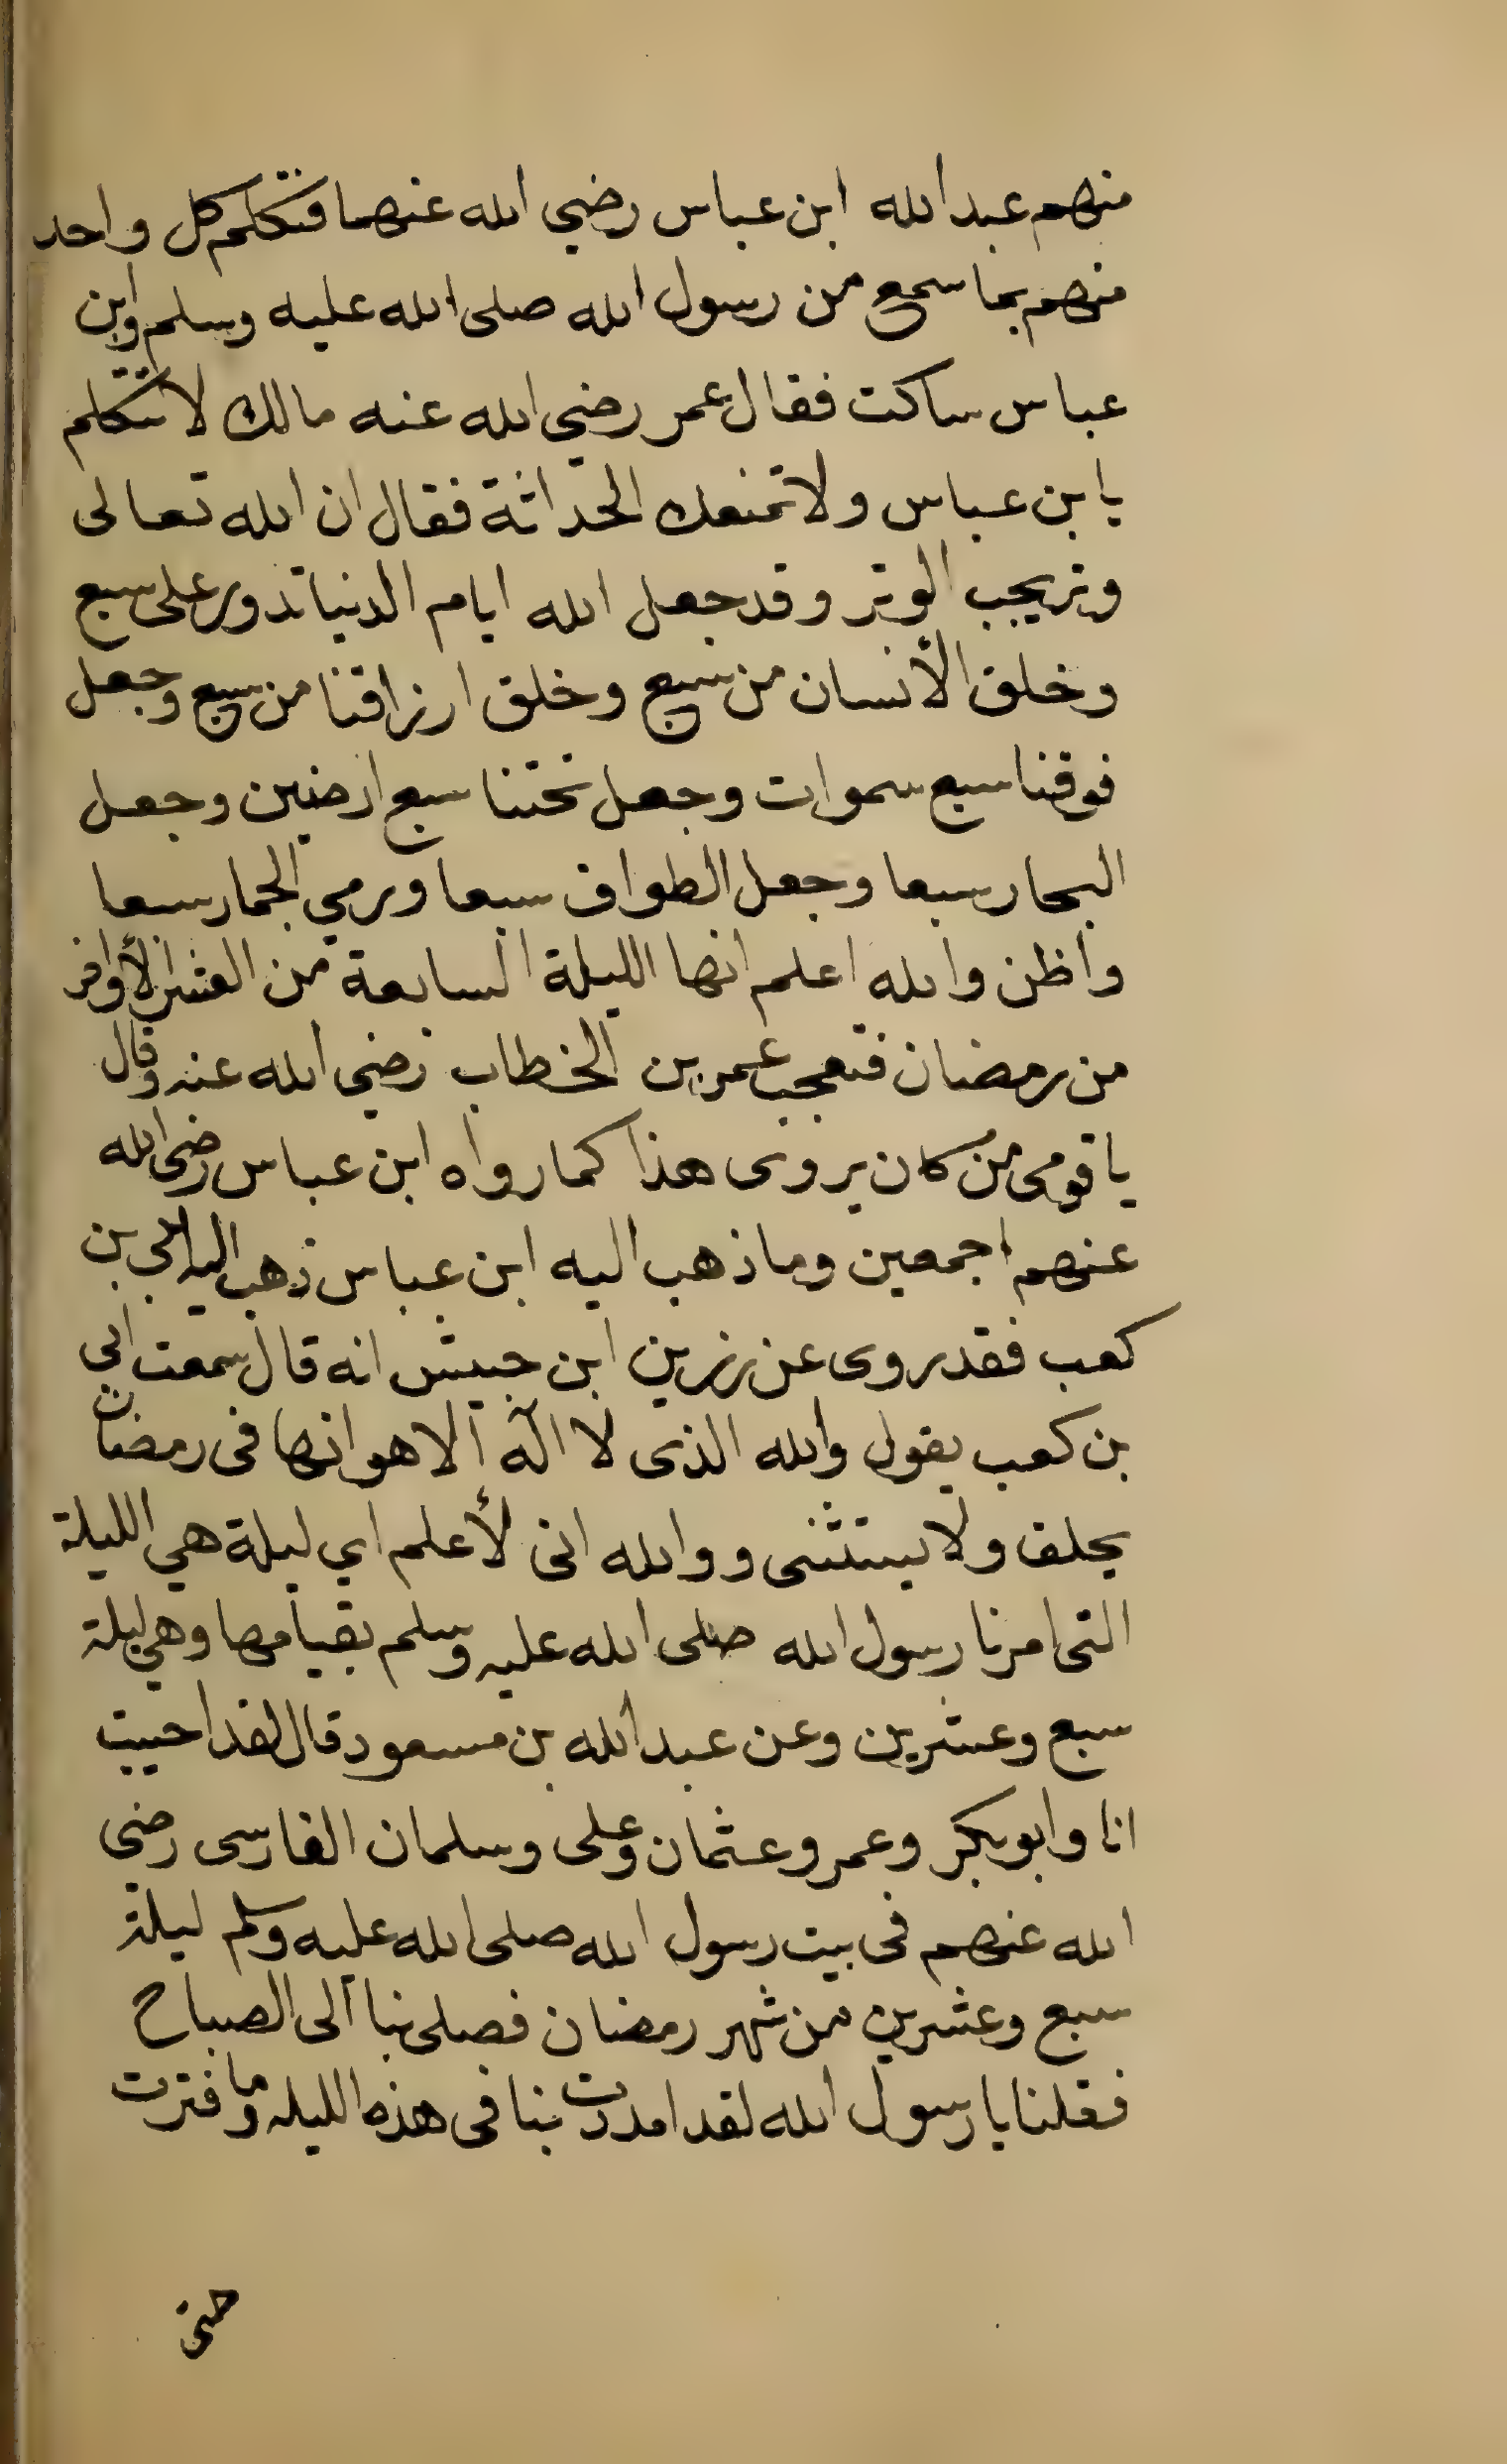 منهم عبد الله ابن عباس رضي الله عنهما فتكلم كل واحد
منهم بما سمع من رسول الله صلى الله عليه وسلم وابن
عباس ساكت فقال عمر رضي الله عنه مالك لا تتكلم
يا بن عباس ولا تمنعك الحداثة فقال ان الله تعالى
وتر يحب الوتر وقد جعل الله ايام الدنيا تدور على سبع
وخلق الأنسان من سبع وخلق ارزاقنا من سبع وجعل
فوقنا سبع سموات وجعل تحتنا سبع ارضين وجعل
البحار سبعا وجعل الطواف سبعا ورمي الجمار سبعا
واظن والله اعلم انها الليلة السابعة من العشر الأواخر
من رمضان فتعجب عمر بن الخطاب رضي الله عنه وقال
يا قومى من كان يروى هذا كما رواه ابن عباس رضى الله
عنهم اجمعين وما ذهب اليه ابن عباس ذهب اليه ابي بن
كعب فقد روى عن زر بن ابن حبيش انه قال سمعت ابى
بن كعب يقول والله الذى لا اله الا هو انها فى رمضان
يحلف ولا يستثنى ووالله انى لأعلم اي ليلة هي الليلة
التى امرنا رسول الله صلى الله عليه وسلم بقيامها وهي ليلة
سبع وعشرين وعن عبد الله بن مسعود قال لقد احييت
انا وابو بكر وعمر وعثمان وعلى وسلمان الفارسى رضي
الله عنهم فى بيت رسول الله صلى الله عليه وسلم ليلة
سبع وعشرين من شهر رمضان فصلى بنا الى الصباح
فقلنا يا رسول الله لقد امددت بنا فى هذه الليله وما فترت
حتى